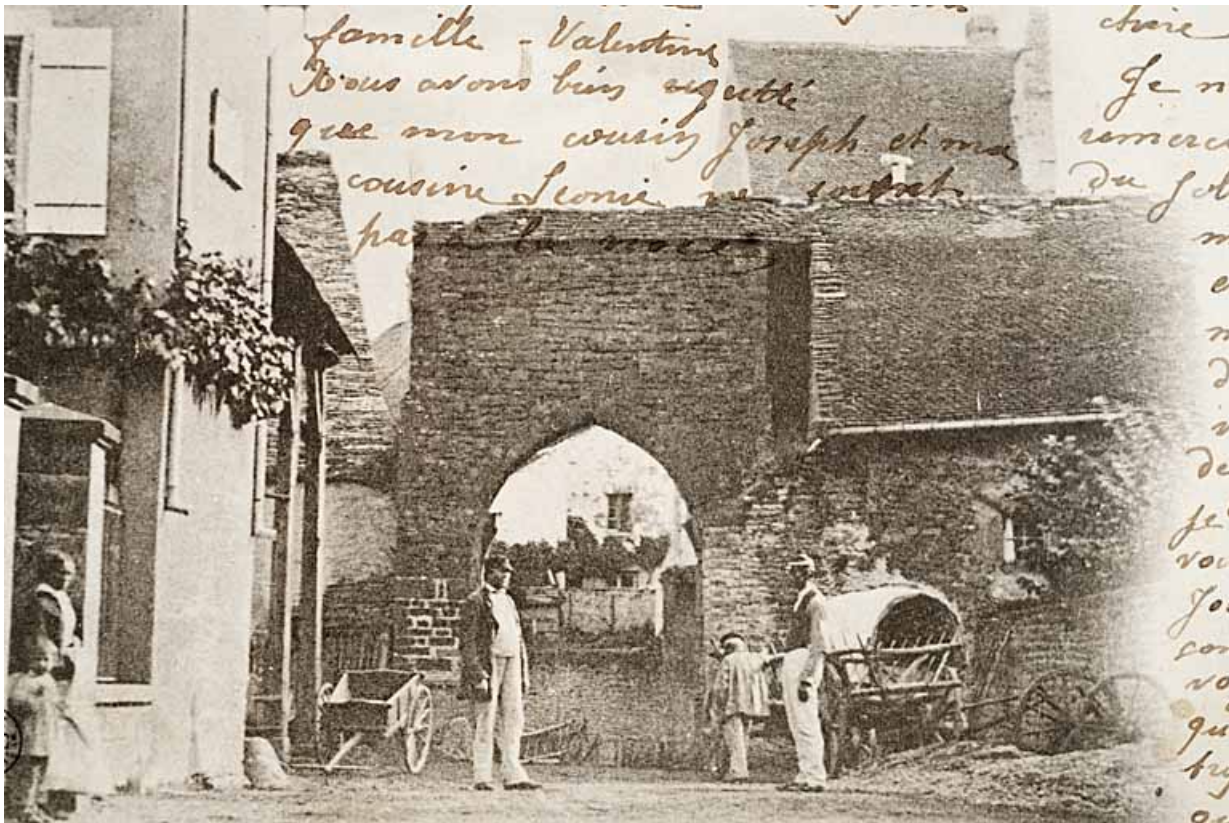 famille - Valentine
Nous avons bien regretté
que mon cousin Joseph et ma
cousine Leonie ne soient
pas à la noce
chère
Je n
remerci
du Jol
m
e
m
d
de
je
vou
Jo
con
vo
qu